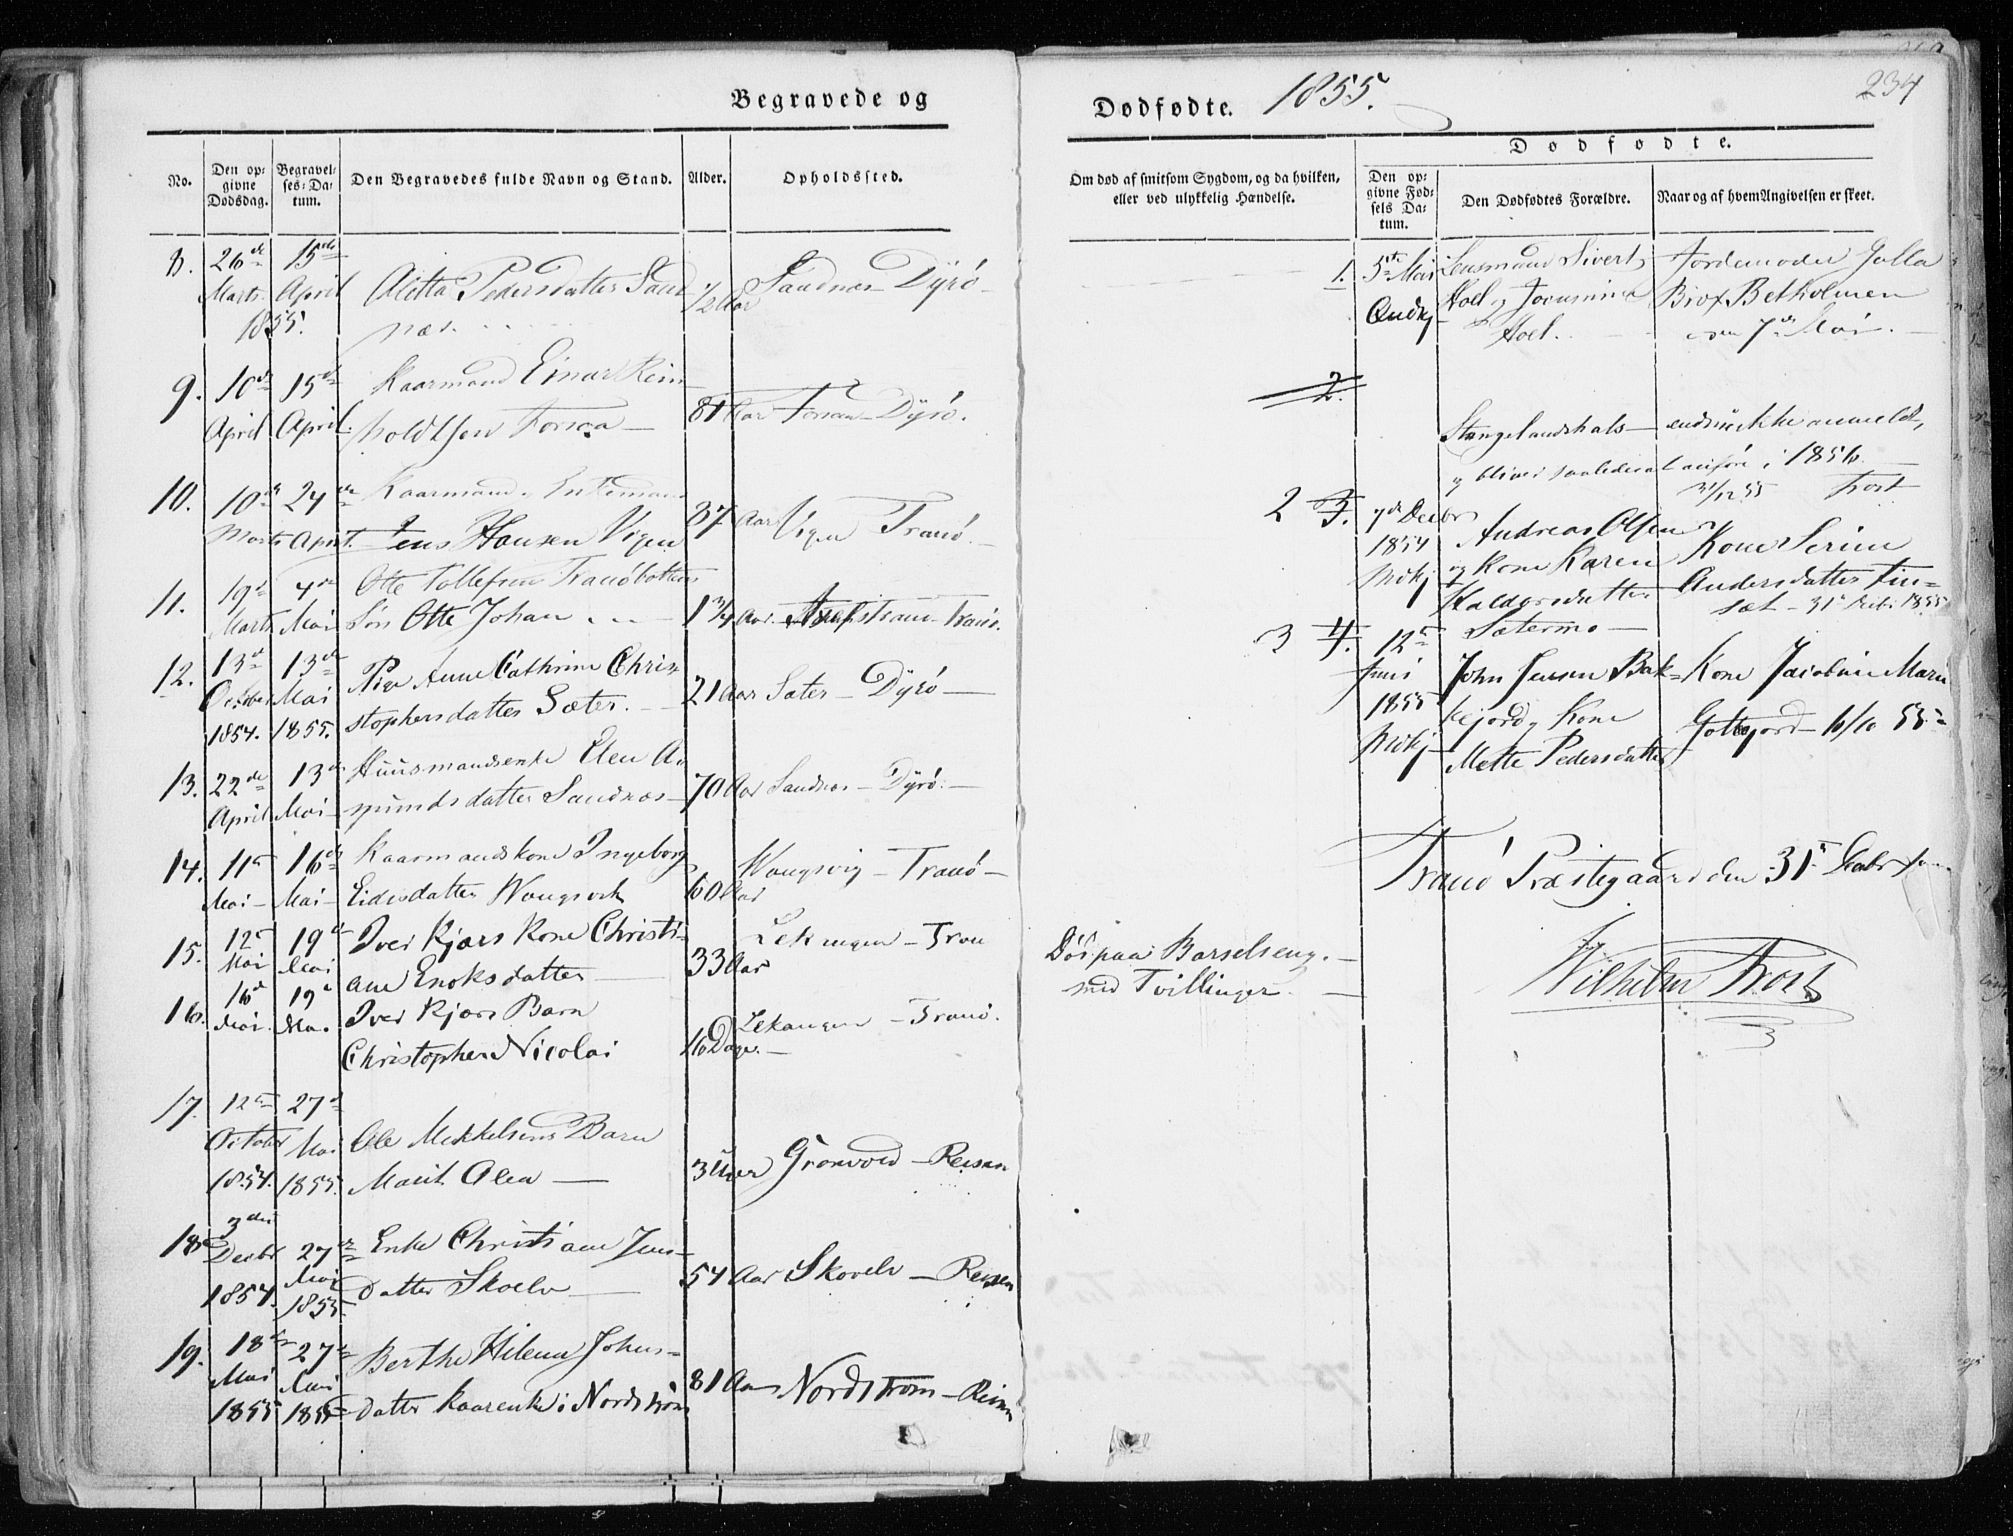 Begravede og
Dødfødte. 1855.
234
No.
Den opgivne Dødsdag.
Begravelses-Datum.
Den Begravedes fulde Navn og Stand.
Alder.
Opholdssted.
Om død af smitsom Sygdom, og da hvilken, eller ved ulykkelig Hændelse.
Dødfødte.
Den opgivne Fødsels Datum.
Den Dødfødtes Forældre.
Naar og af hvem Angivelsen er skeet.
8. 26de Marts 1855. 15de April
Aletta Pedersdatter Sandnæs
1/2 Aar Sandnæs Dyrø
9. 10de April 15de April
Kaarmand Einar Reinholdtsen Forsaa
81 Aar Forsaa Dyrø.
10. 10de Marts 24de April
Kaarmand og Enkemand Jens Hansen Vigen
87 Aar Vigen Tranø.
11. 19de Marts 4de Mai
Otte Tollefsen Tranøbottens Søn Otte Johan
1 3/4 Aar Tranø.
12. 13de October 1854. 13de Mai 1855.
Pige Anne Cathrine Christophersdatter Sæter.
21 Aar Sæter Dyrø
13. 22de April 13de Mai
Huusmandsenke Elen Asmundsdatter Sandnæs
70 Aar Sandnæs Dyrø.
14. 11te Mai 16de Mai
Kaarmandskone Ingeborg Eidisdatter Wangsvik
60 Aar Wangsvig Tranø
15. 12te Mai 19de Mai
Iver Kjærs Kone Christiane Enoksdatter
33 Aar Lekangen Tranø
Død paa Barselseng. med Tvillinger.
16. 16de Mai. 19de Mai
Iver Kjærs Barn Christopher Nicolai
10 Dage. Lekangen Tranø.
17. 12te October 1854. 27de Mai 1855.
Ole Mikkelsens Barn Marit Olea
3 Uger Grønvold Reisen
18. 3die Decbr 1854. 27de Mai 1855.
Enke Christiane Jensdatter Skoelv
54 Aar Skoelv Reisen
19. 18de Mai 1855 27de Mai 1855
Berthe Helena Johnsdatter Kaarenke i Nordstrøm
81 Aar Nordstrøm Reisen
1. 5te Mai
Lensmand Sivert Hoel og Hoel.
Jordemoder Golla Brox Betholmen den 7de Mai.
2.
Stangelandshals endnu ikke anmeldt,
og bliver saaledes at anføre i 1856.
31/12 55 Frost
2 3. 7de Decbr 1854
Andreas Olsen og Kone Karen Haldorsdatter Sætermo
Kone Serine Andersdatter Finsæt 31te Decbr 1855
3 4. 12te Juni 1855
John Jensen Bakkejord og Kone Mette Pedersdatter
Kone Jacobine Marie 6/10 55.
Tranø Præstegaard den 31te Decbr
Wilhelm Frost